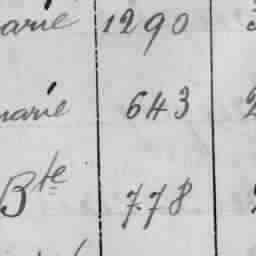 arie 1290
narie 643
Bte 778